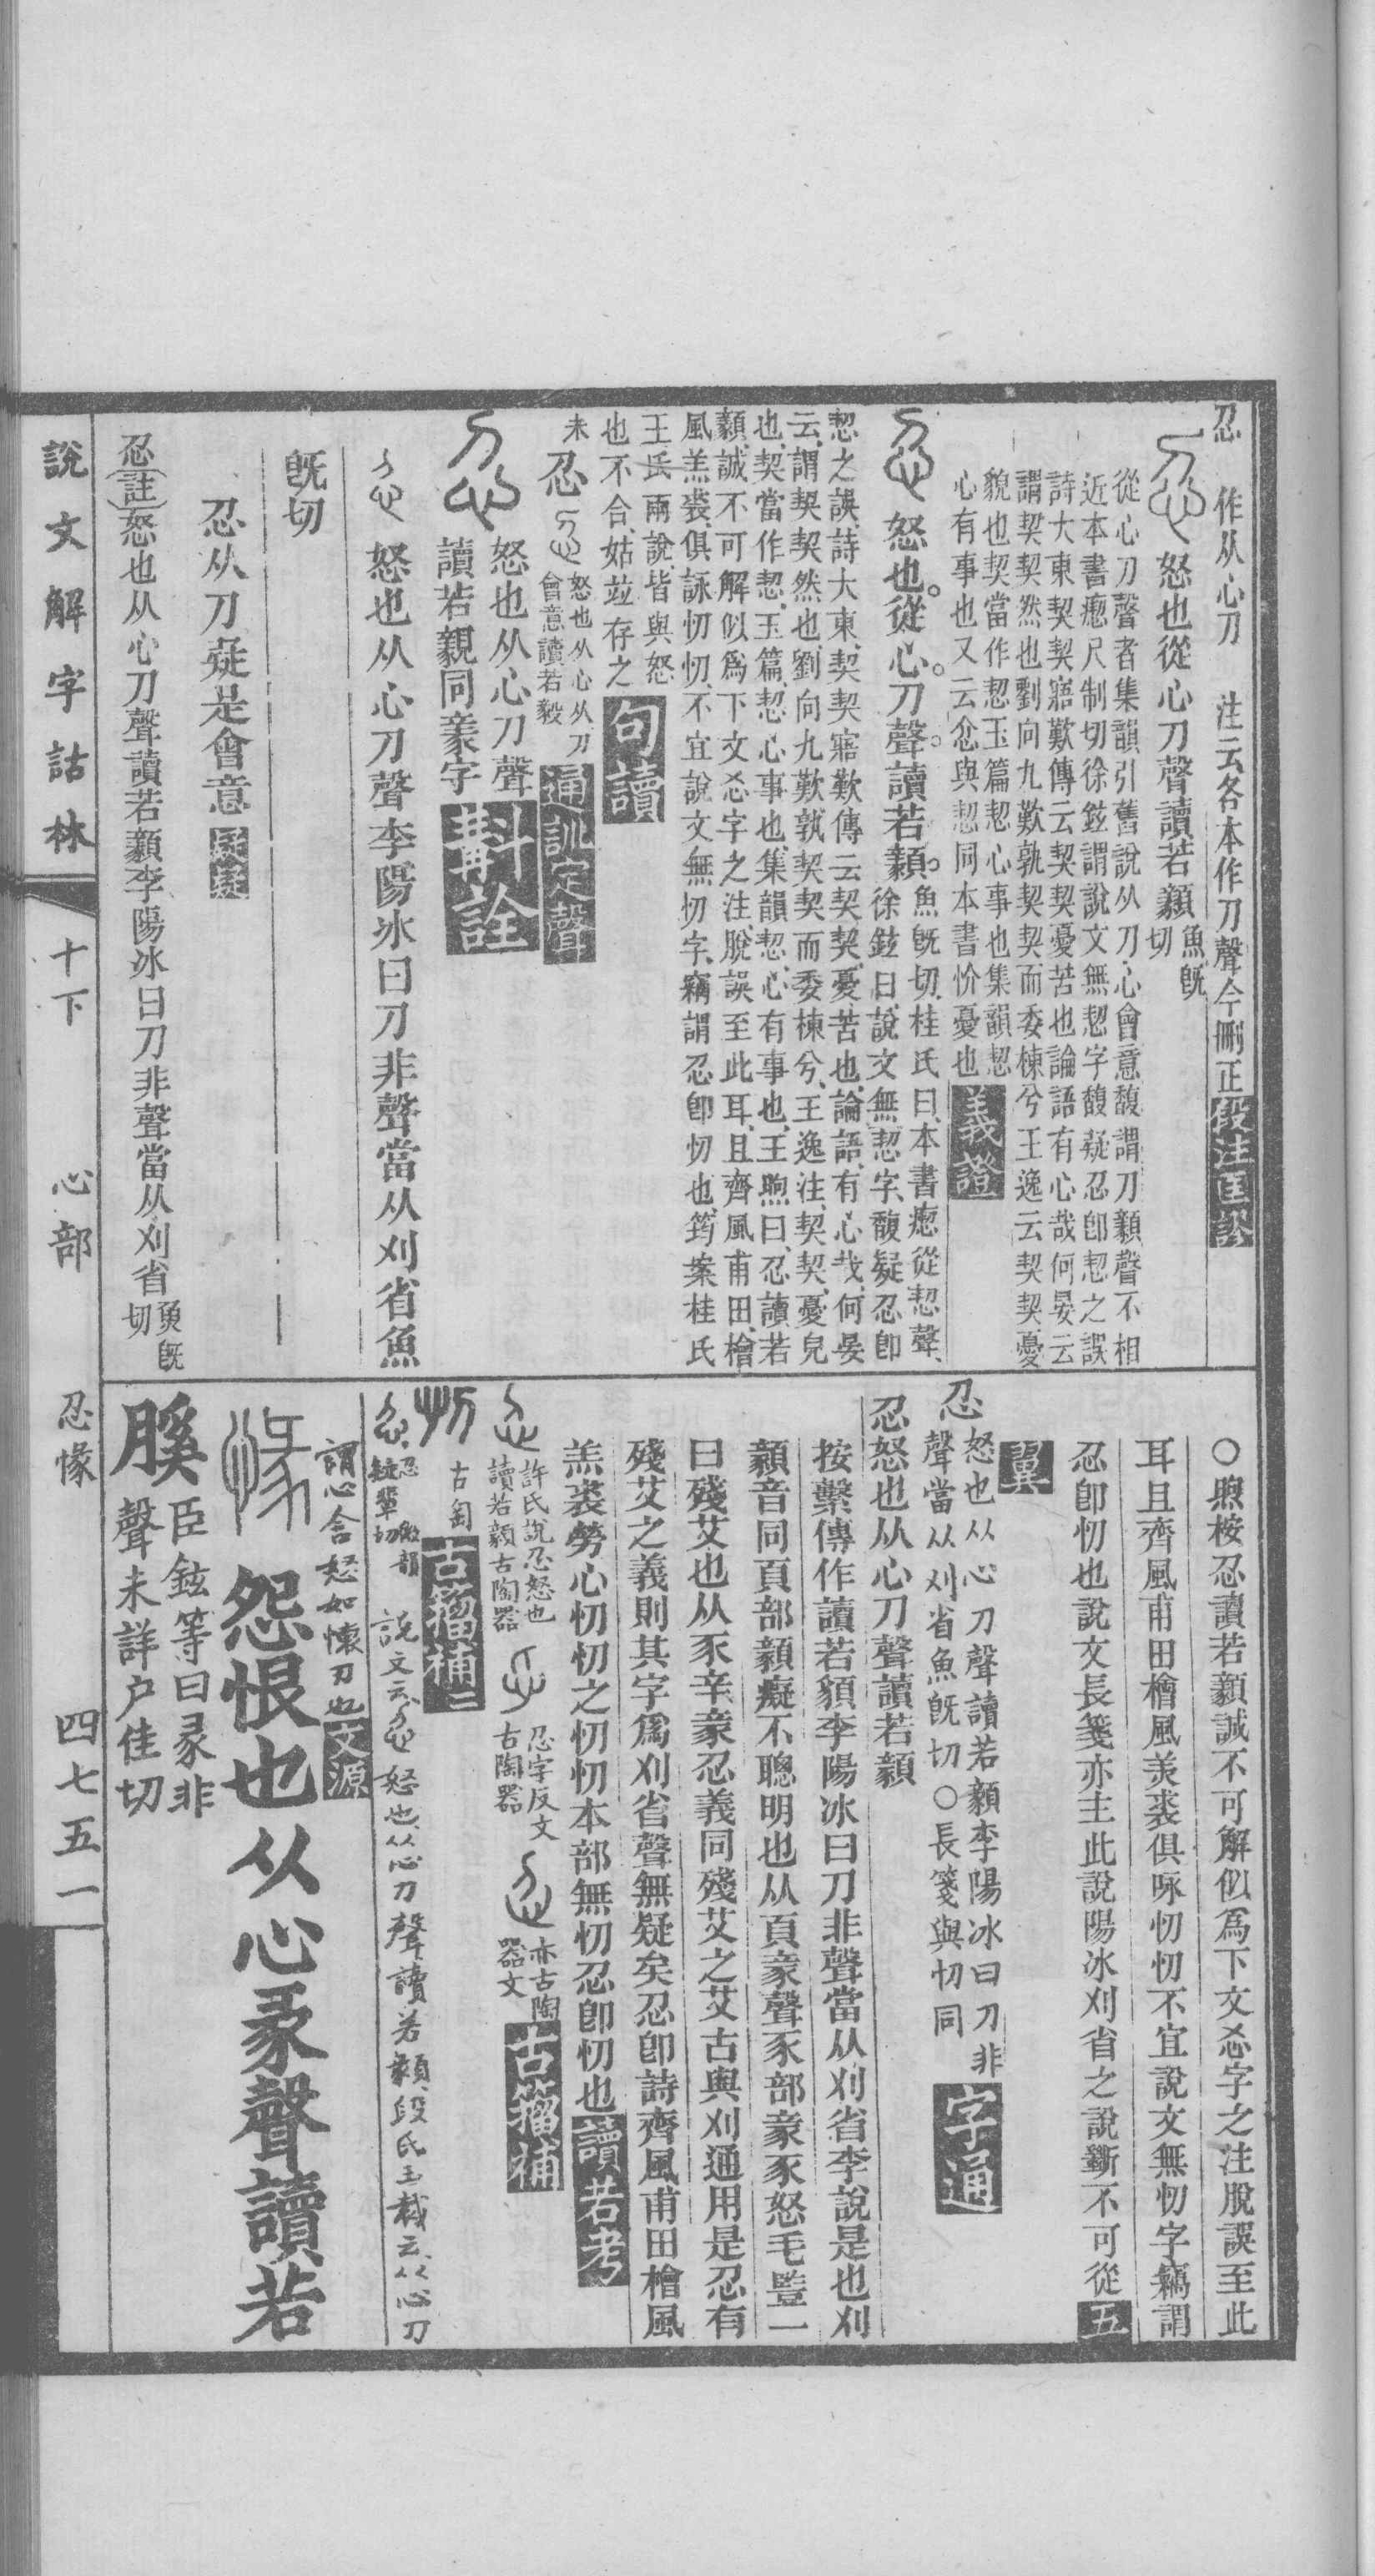 忍　作从心刀　注云各本作刀聲今刪正段注匡謬
怒也從心刀聲讀若顡魚旣切
從心刀聲者集韻引舊說从刀心會意馥謂刀顡聲不相
近本書瘛尺制切徐鉉謂說文無恝字馥疑忍卽恝之誤
詩大東契契寤歎傳云契契憂苦也論語有心哉何晏云
謂契契然也劉向九歎孰契契而委棟兮王逸云契契憂
貌也契當作恝玉篇恝心事也集韻恝
心有事也又云忿與恝同本書忦憂也義證
怒也從心刀聲讀若顡魚旣切桂氏曰本書瘛從恝聲
徐鉉曰說文無恝字馥疑忍卽
恝之誤詩大東契契寤歎傳云契契憂苦也論語有心哉何晏
云謂契契然也劉向九歎孰契契而委棟兮王逸注契契憂皃
也契當作恝玉篇恝心事也集韻恝心有事也王煦曰忍讀若
顡誠不可解似爲下文忞字之注脫誤至此耳且齊風甫田檜
風羔裘俱詠忉忉不宜說文無忉字竊謂忍卽忉也筠案桂氏
王氏兩說皆與怒
也不合姑竝存之句讀
未忍怒也从心从刀
會意讀若毅通訓定聲
怒也从心刀聲
讀若親同豙字斠詮
怒也从心刀聲李陽冰曰刀非聲當从刈省魚
旣切
忍从刀疑是會意疑疑
忍(註)怒也从心刀聲讀若顡李陽冰曰刀非聲當从刈省魚旣切
○煦桉忍讀若顡誠不可解似爲下文忞字之注脫誤至此
耳且齊風甫田檜風羔裘俱咏忉忉不宜說文無忉字竊謂
忍卽忉也說文長箋亦主此說陽冰刈省之說斷不可從五
翼
忍怒也从心刀聲讀若顡李陽冰曰刀非
聲當从刈省魚旣切○長箋與忉同字通
忍怒也从心刀聲讀若顡
按繫傳作讀若䫉李陽冰曰刀非聲當从刈省李說是也刈
顡音同頁部顡癡不聰明也从頁豙聲豕部豙豕怒毛豎一
曰殘艾也从豕辛豙忍義同殘艾之艾古與刈通用是忍有
殘艾之義則其字爲刈省聲無疑矣忍卽詩齊風甫田檜風
羔裘勞心忉忉之忉忉本部無忉忍卽忉也讀若考
許氏說忍怒也
讀若顡古陶器　忍字反文
古陶器　亦古陶
器文古籀補
古匋古籀補二
說文云怒也从心刀聲讀若顡段氏玉裁云从心刀
謂心含怒如懷刀也文源
怨恨也从心彖聲讀若
膎臣鉉等曰彖非
聲未詳户佳切
說文解字詁林　十下　心部　忍㥟　四七五一